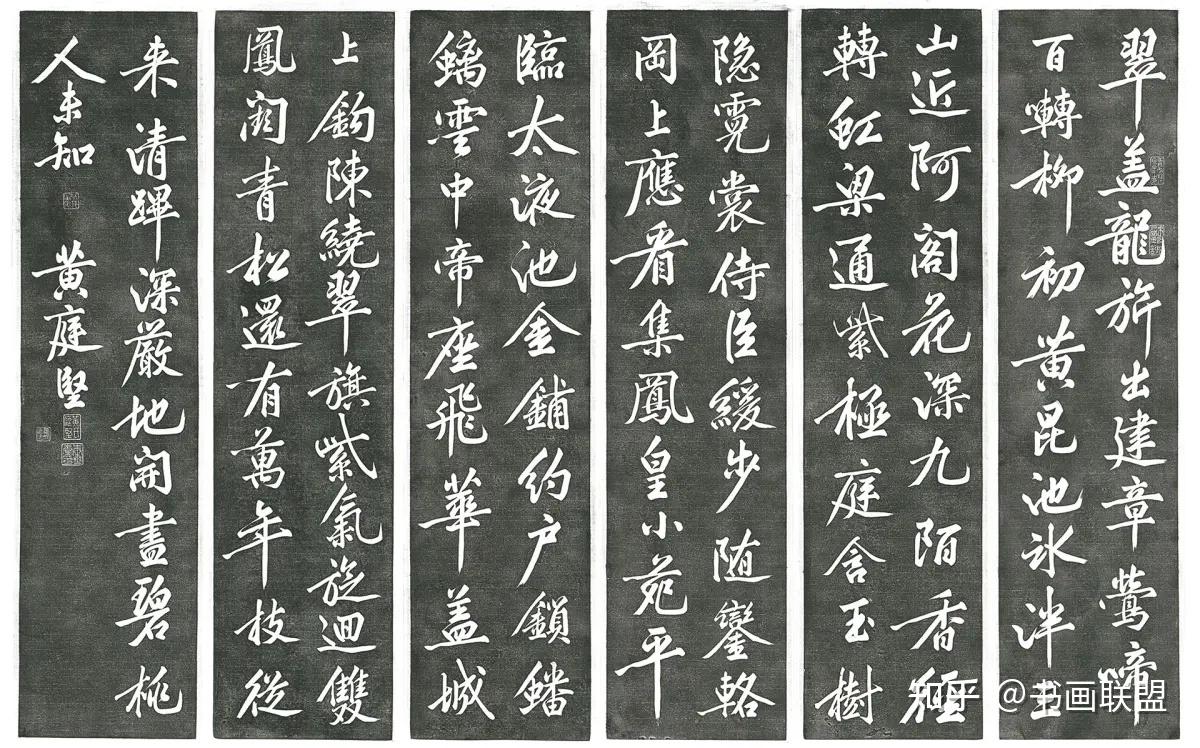 翠盖龍旂出建章鶯啼
百囀柳初黄昆池氷泮三
山近阿阁花深九陌香徑
轉虹梁通紫極庭含玉樹
隐霓裳侍臣緩步随鑾輅
岡上應看集鳳皇小苑平
臨太液池金鋪約户鎖蟠
螭雲中帝座飛華盖城
上鈎陳繞翠旗紫氣旋迴雙
鳳闕青松還有萬年枝従
来清蹕深嚴地開盡碧桃
人未知
黄庭堅
知乎 @书画联盟